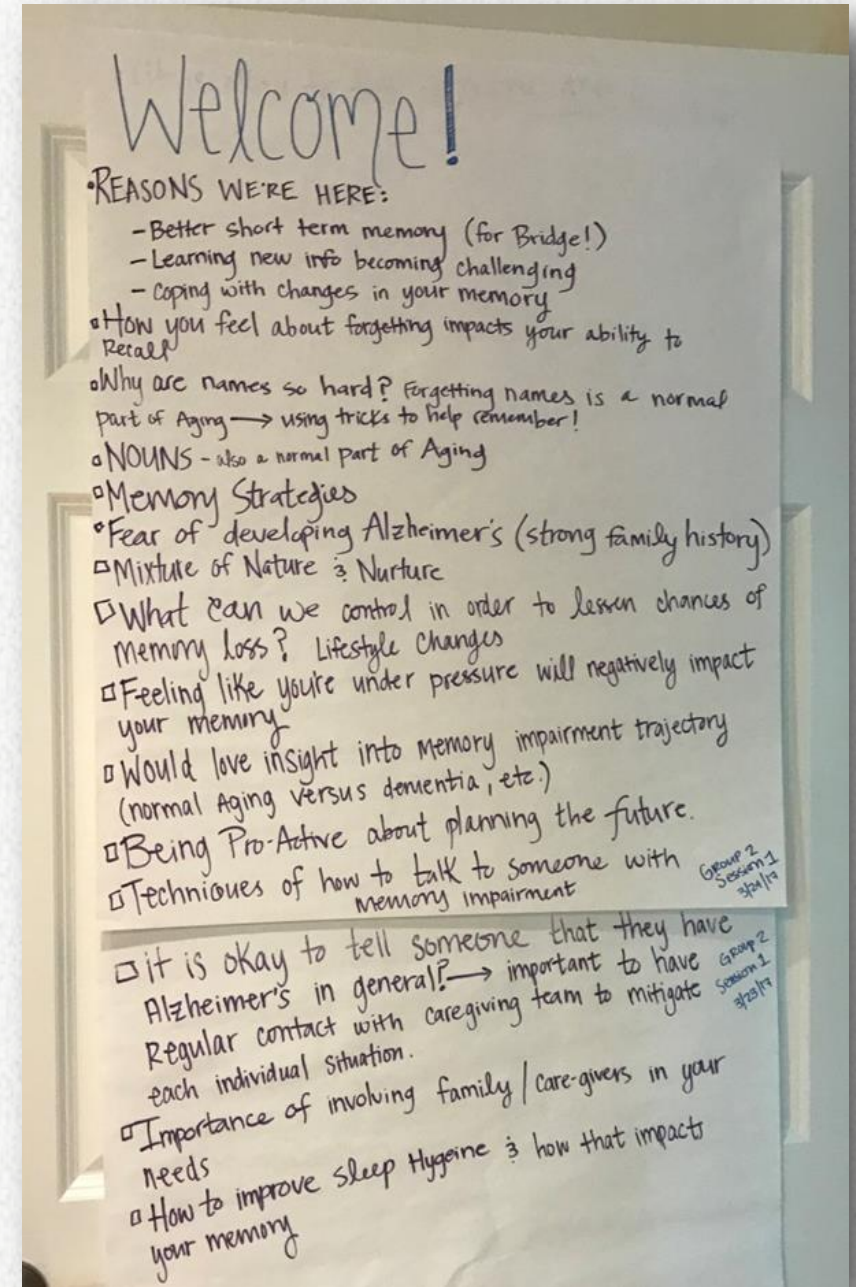 Welcome!
•REASONS WE'RE HERE:
-Better short term memory (for Bridge!)
-Learning new info becoming challenging
- Coping with changes in your memory
▫How you feel about forgetting impacts your ability to
Recall
▫Why are names so hard? Forgetting names is a normal
part of Aging → using tricks to help remember!
▫NOUNS - also a normal part of Aging
▫Memory Strategies
▫Fear of developing Alzheimer's (strong family history)
▫Mixture of Nature & Nurture
▫What can we control in order to lessen chances of
memory loss? Lifestyle Changes
▫Feeling like you're under pressure will negatively impact
your memory
▫Would love insight into memory impairment trajectory
(normal Aging versus dementia, etc.)
▫Being Pro-Active about planning the future.
▫Techniques of how to talk to someone with
memory impairment
Group 2
Session 1
▫it is okay to tell someone that they have
Alzheimer's in general? → important to have
Regular contact with caregiving team to mitigate
each individual situation.
Group 2
Session 1
▫Importance of involving family / care-givers in your
needs
▫How to improve sleep Hygeine & how that impacts
your memory